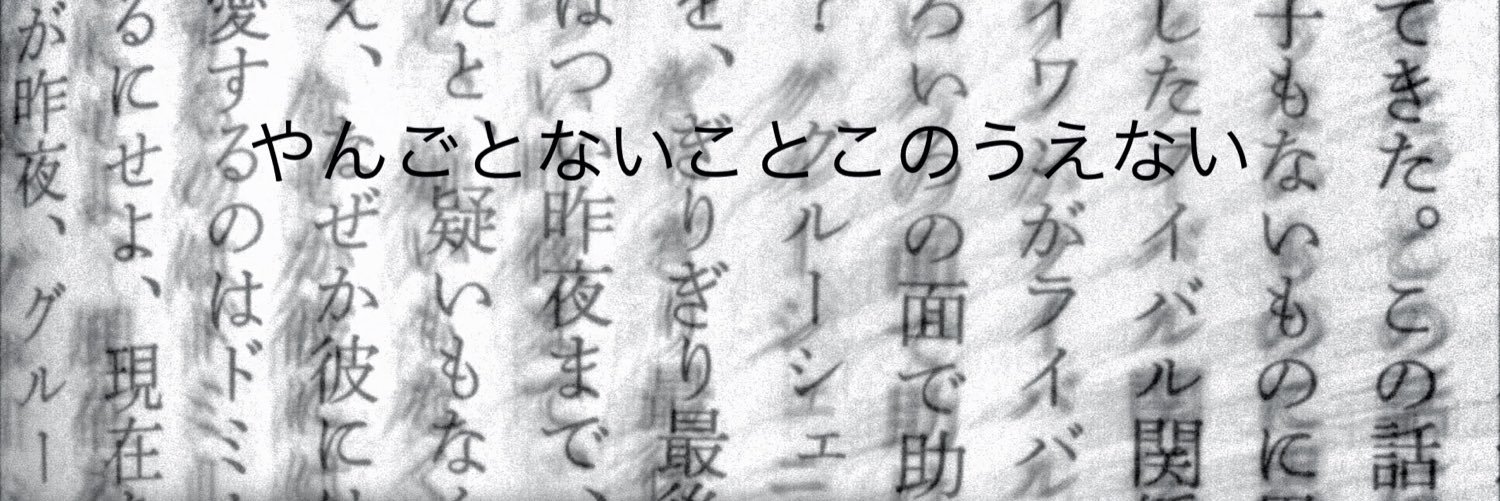 やんごとないことこのうえない
てきた。この話
子もないものに
したライバル関
イワンがライバ
ろいろの面で助
？ グルーシェ
を、ぎりぎり最後
はつい昨夜まで、
たと、疑いもな
え、なぜか彼に
愛するのはドミ
るにせよ、現在
が昨夜、グルー